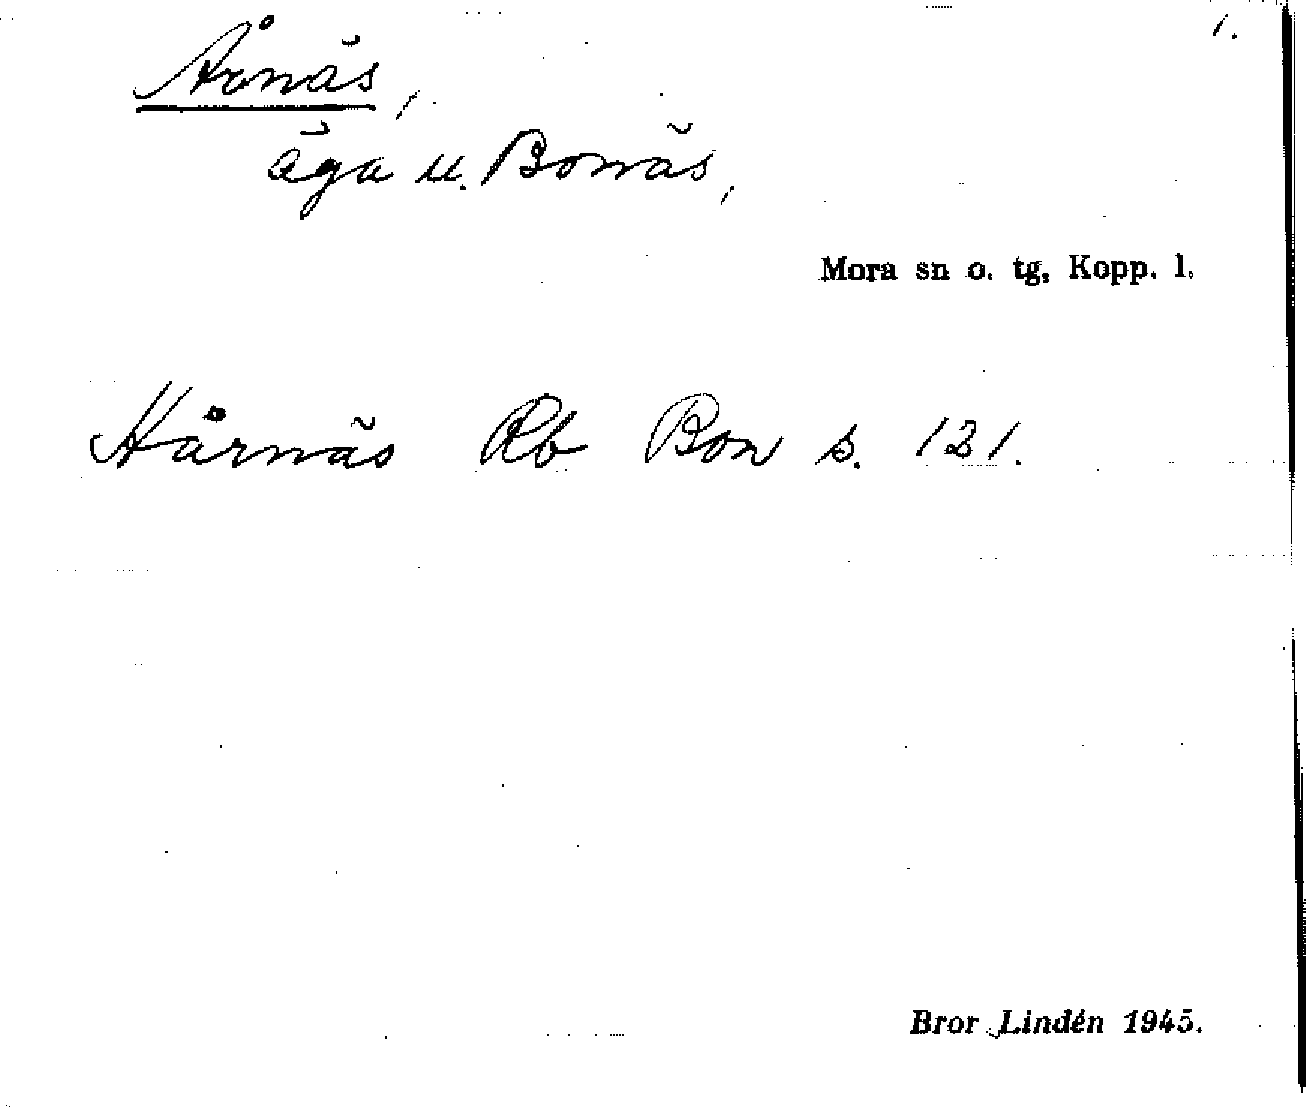 1.
Årnäs,
äga u. Bonäs,
Mora sn o. tg, Kopp. l.
Hårnäs Rb Bon s. 121.
Bror Lindén 1945.